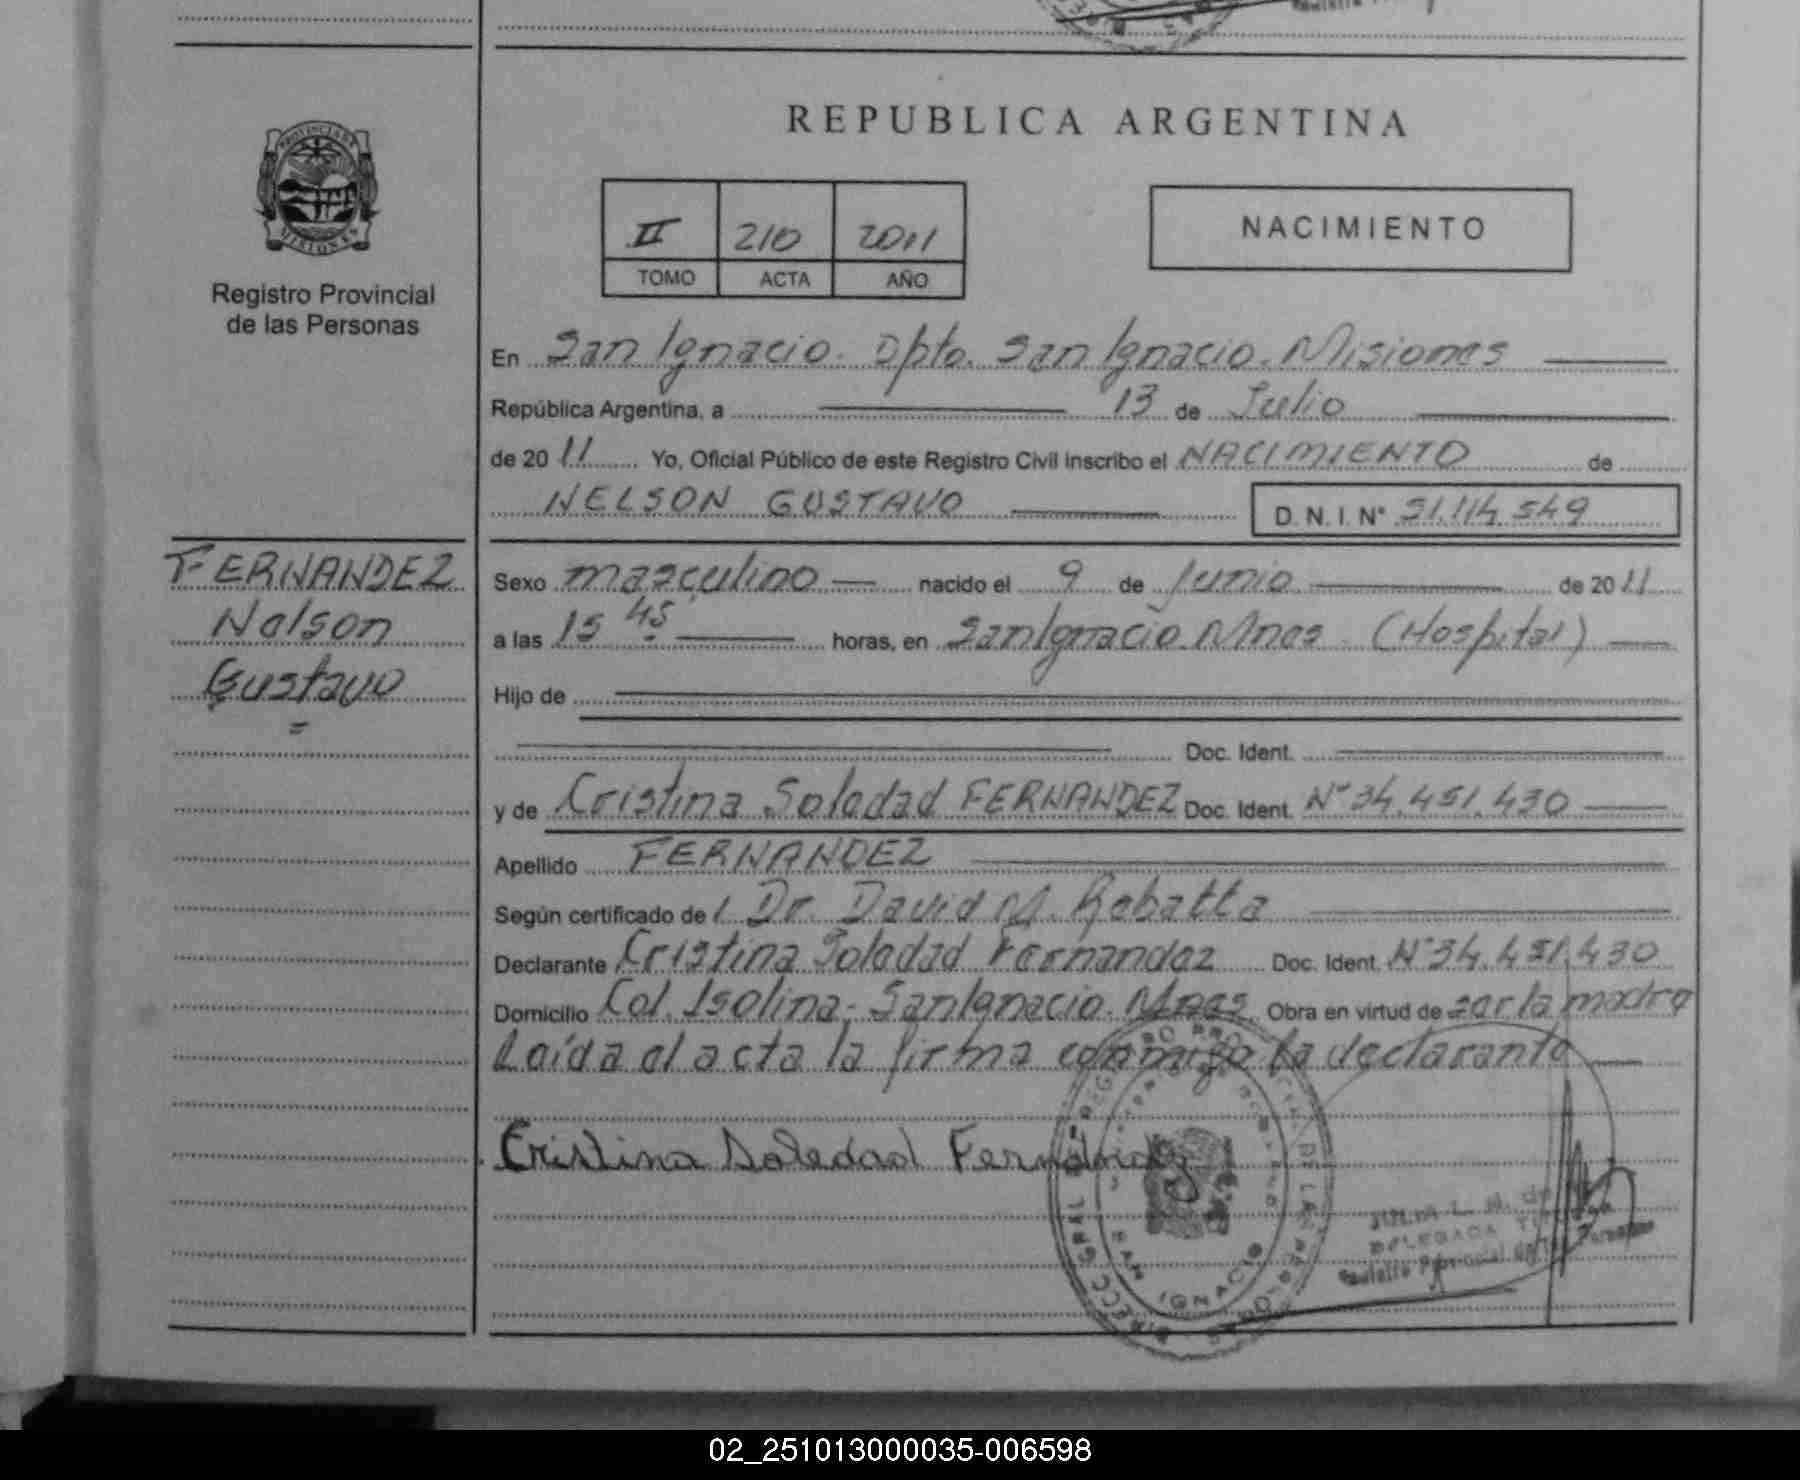 REPUBLICA ARGENTINA
PROVINCIA DE
MISIONES
Registro Provincial
de las Personas
II 210 2011
TOMO ACTA AÑO
NACIMIENTO
En San Ignacio. Dpto. San Ignacio. Misiones
República Argentina, a 13 de Julio
de 2011 Yo, Oficial Público de este Registro Civil Inscribo el NACIMIENTO de
NELSON GUSTAVO D. N. I. N° 51.114.549
FERNANDEZ
Nelson
Gustavo
Sexo masculino nacido el 9 de Junio de 2011
a las 15 45 horas, en San Ignacio. Mnes. (Hospital)
Hijo de
Doc. Ident.
y de Cristina Soledad FERNANDEZ Doc. Ident. N° 34.451.430
Apellido FERNANDEZ
Según certificado de l Dr. David M.
Declarante Cristina Soledad Fernandez Doc. Ident. N° 34.451.430
Domicilio Col. Isolina. San Ignacio. Mnes. Obra en virtud de ser la madre
Leída el acta la firma conmigo la declarante
Cristina Soledad Fernandez
SAN IGNACIO
JULIA L. M. de
DELEGADA
Registro Provincial de las Personas
02_251013000035-006598